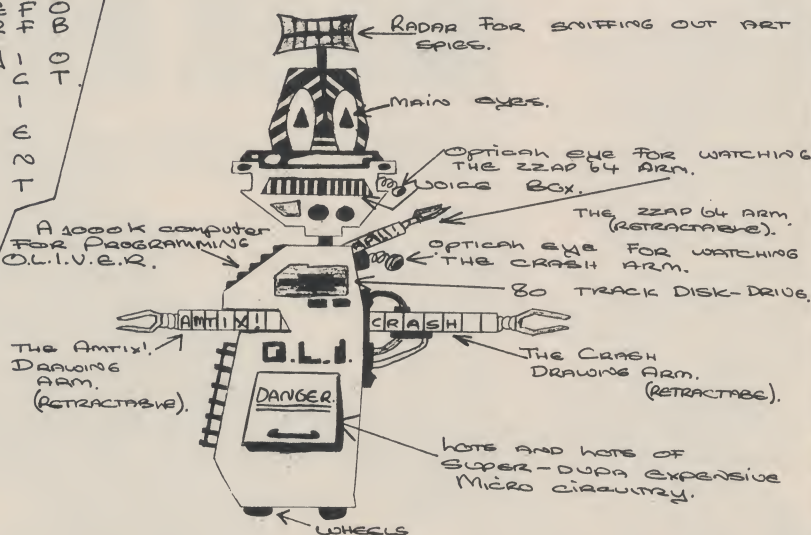 RADAR FOR SNIFFING OUT ART
SPIES.
MAIN EYES.
OPTICAL EYE FOR WATCHING
THE ZZAP 64 ARM.
VOICE BOX.
THE ZZAP 64 ARM
(RETRACTABLE).
A 1000K computer
FOR PROGRAMMING
O.L.I.V.E.R.
OPTICAL EYE FOR WATCHING
THE CRASH ARM.
80 TRACK DISK-DRIVE.
AMTIX!
CRASH
THE AMTIX!
DRAWING
ARM.
(RETRACTABLE).
THE CRASH
DRAWING ARM.
(RETRACTABE).
O.L.I.
DANGER.
LOTS AND LOTS OF
SUPER-DUPA EXPENSIVE
MICRO CIRCUITRY.
WHEELS